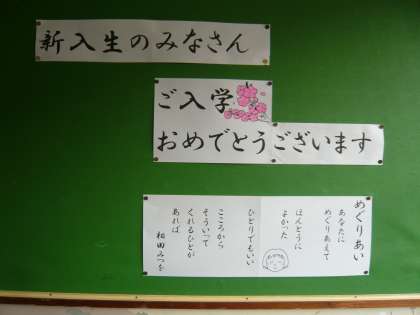 新入生のみなさん
ご入学
おめでとうございます
めぐりあい
あなたに
めぐりあえて
ほんとうに
よかった
ひとりでもいい
こころから
そういって
くれるひとが
あれば
相田みつを